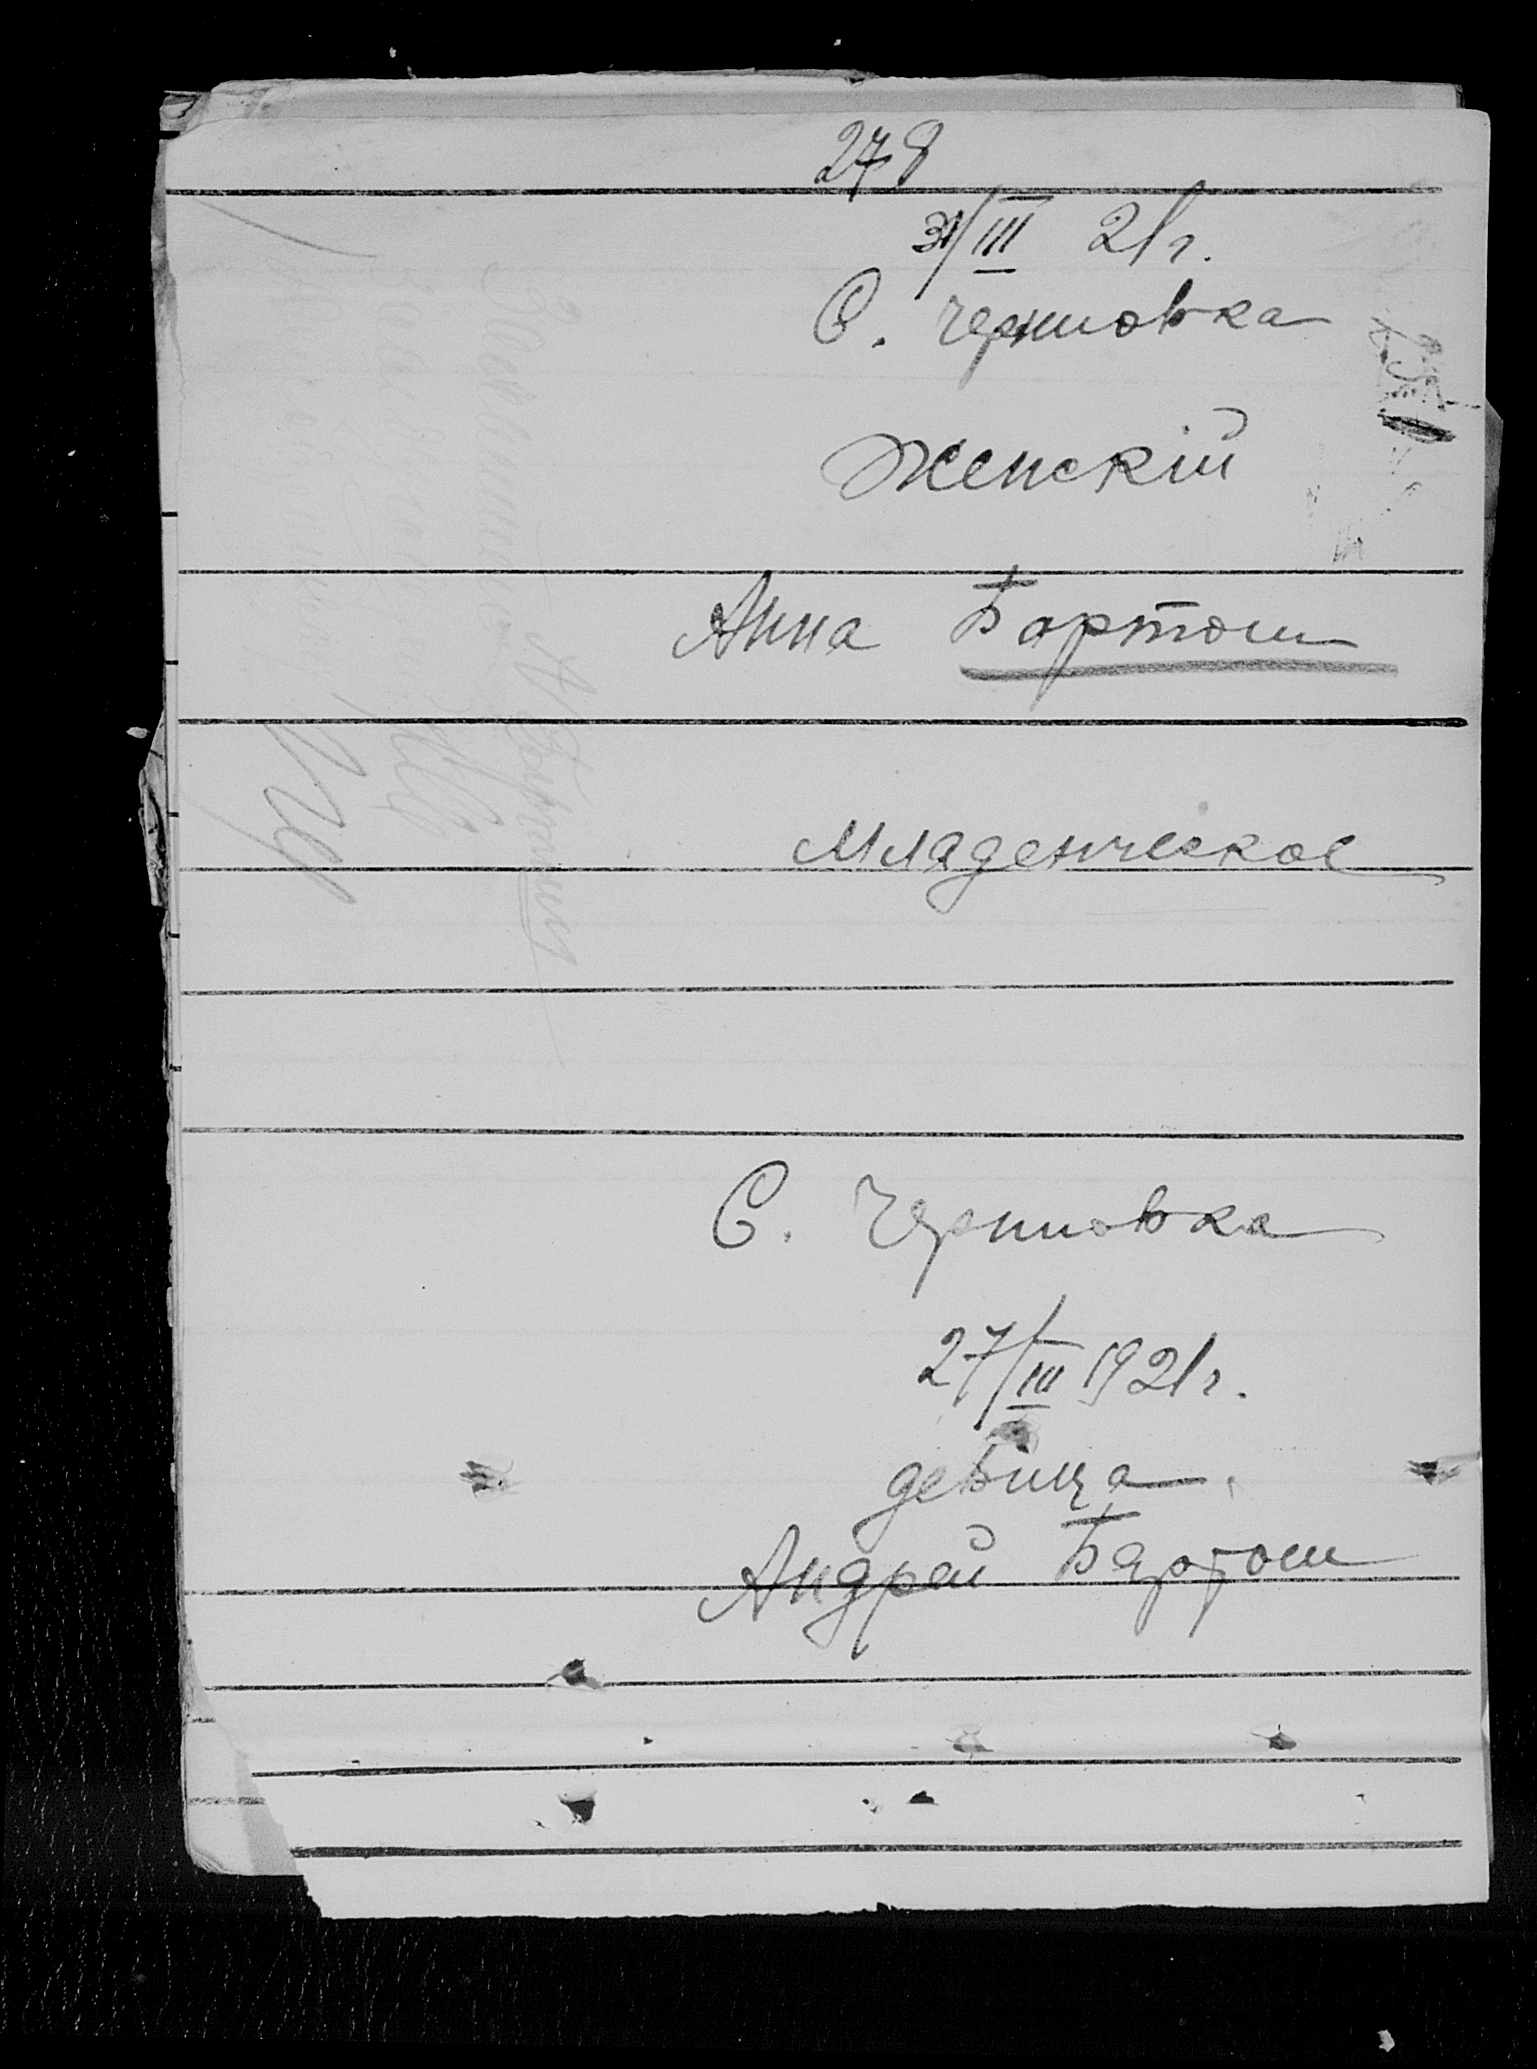 278
31/III 21г.
С. Черниовка
Женскій
Анна Бортош
Младенческое
С. Черниовка
27/III 1921г.
девица
Андрей Бартош